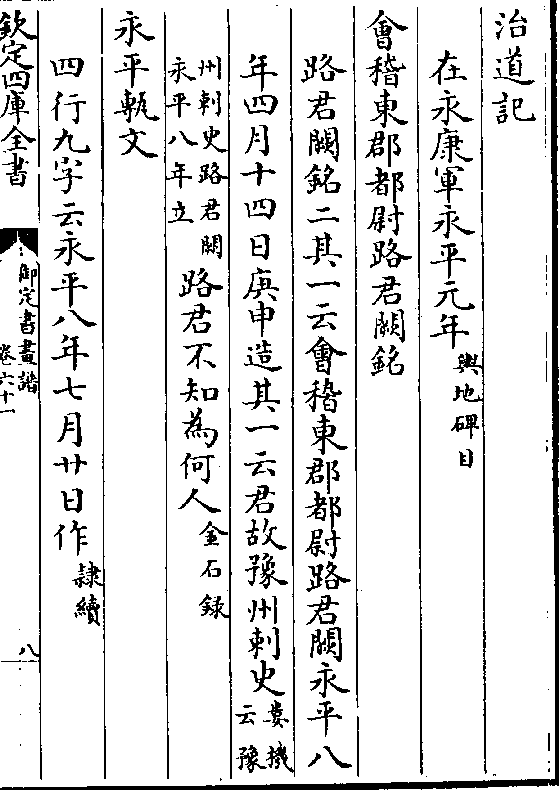 治道記
在永康軍永平元年輿地碑目
會稽東郡都尉路君闕銘
路君闕銘二其一云會稽東郡都尉路君闕永平八
年四月十四日庚申造其一云君故豫州刺史婁機云豫
州刺史路君闕永平八年立路君不知為何人金石録
永平甎文
四行九字云永平八年七月廿日作隷續
欽定四庫全書
御定書畫譜
卷六十一
八